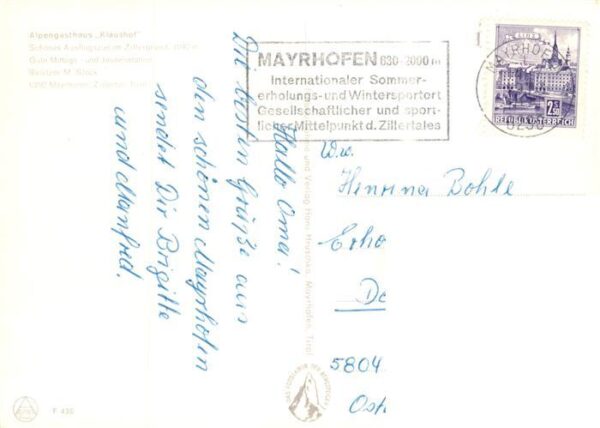 Alpengasthaus „Klaushof"
Schönes Ausflugsziel im Zillergrund,
Gute Mittags- und Jausenstation
Besitzer M.
6290 Mayrhofen, Zillertal, Tirol
MAYRHOFEN 630-3000 m
Internationaler Sommer-
erholungs-und Wintersportort
Gesellschaftlicher und sport-
licher Mittelpunkt d. Zillertales
LINZ
MAYRHOF
6290
2.50
REPUBLIK ÖSTERREICH
Hallo Oma!
Die besten Grüße aus
den schönen Mayrhofen
sendet Dir Brigitte
und Manfred.
und Verlag Hans Hruschka, Mayrhofen, Tirol
Ww.
Henrina Bohle
Echo
De
5804
Osts
F 435